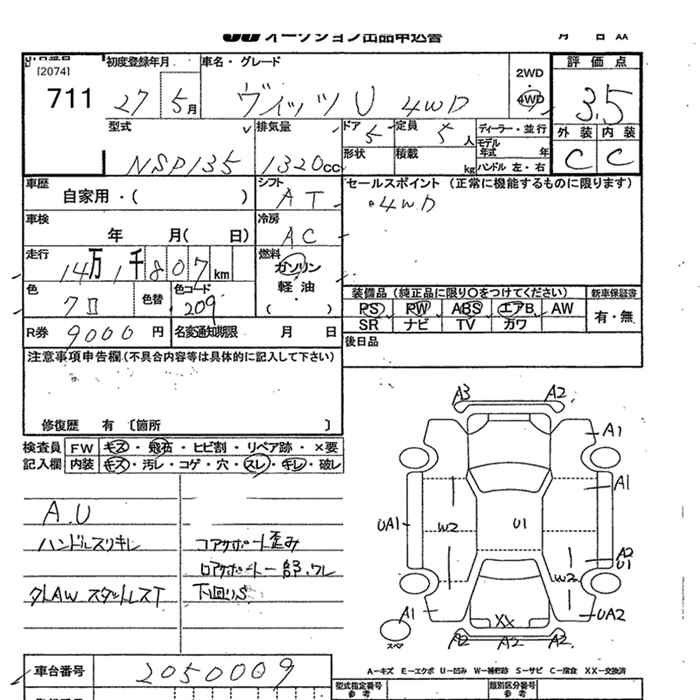 JU オークション出品申込書
月 日 XX
[2074]
711
初度登録年月
27 5月
車名・グレード
ヴィッツU 4WD
2WD
4WD
評価点
3.5
外装 内装
C C
型式
NSP135
排気量
1320cc
ドア 5
定員 5人
形状
積載 kg
ディーラー・並行
モデル年式 年
ハンドル 左・右
車歴
自家用・( )
シフト
AT
セールスポイント (正常に機能するものに限ります)
・4WD
車検
年 月( 日)
冷房
AC
走行
14万1千807km
燃料
ガソリン
軽・油
( )
色
クロ
色替
色コード
209
装備品 (純正品に限り○をつけてください)
新車保証書
PS PW ABS エアB AW
SR ナビ TV カワ
有・無
R券 9000円
名変通知期限 月 日
後日品
注意事項申告欄(不具合内容等は具体的に記入して下さい)
修復歴 有 〔箇所 〕
検査員
記入欄
FW キズ・飛石・ヒビ割・リペア跡・×要
内装 キズ・汚レ・コゲ・穴・スレ・キレ・破レ
A.U
ハンドルスリキレ
コアサポート歪み
ロアサポート一部ワレ
クトAW スタットレスT
下回りS
A3 A2
A1
A1
UA1
W2
U1
A2
U1
W2
A1
XX
UA2
スペア
A2 A2 A2
A−キズ E−エクボ U−凹み W−補修跡 S−サビ C−腐食 XX−交換済
車台番号
2050009
型式指定番号
参考
類別区分番号
参考